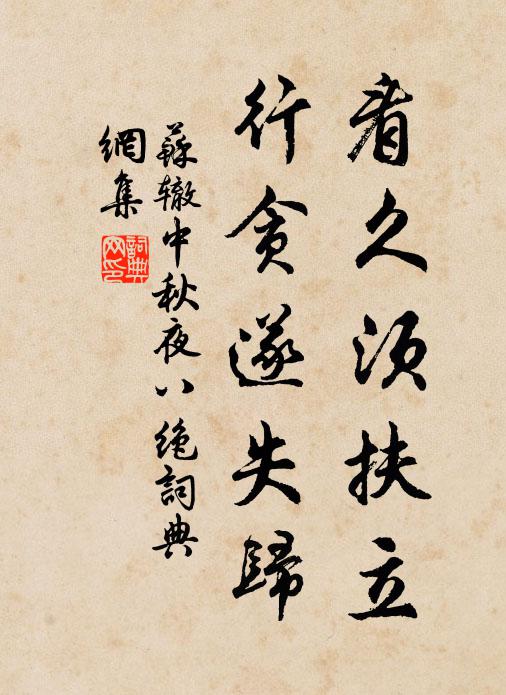 看久须扶立
行贪遂失歸
蘇辙中秋夜八绝詞典
網集
詞典网印